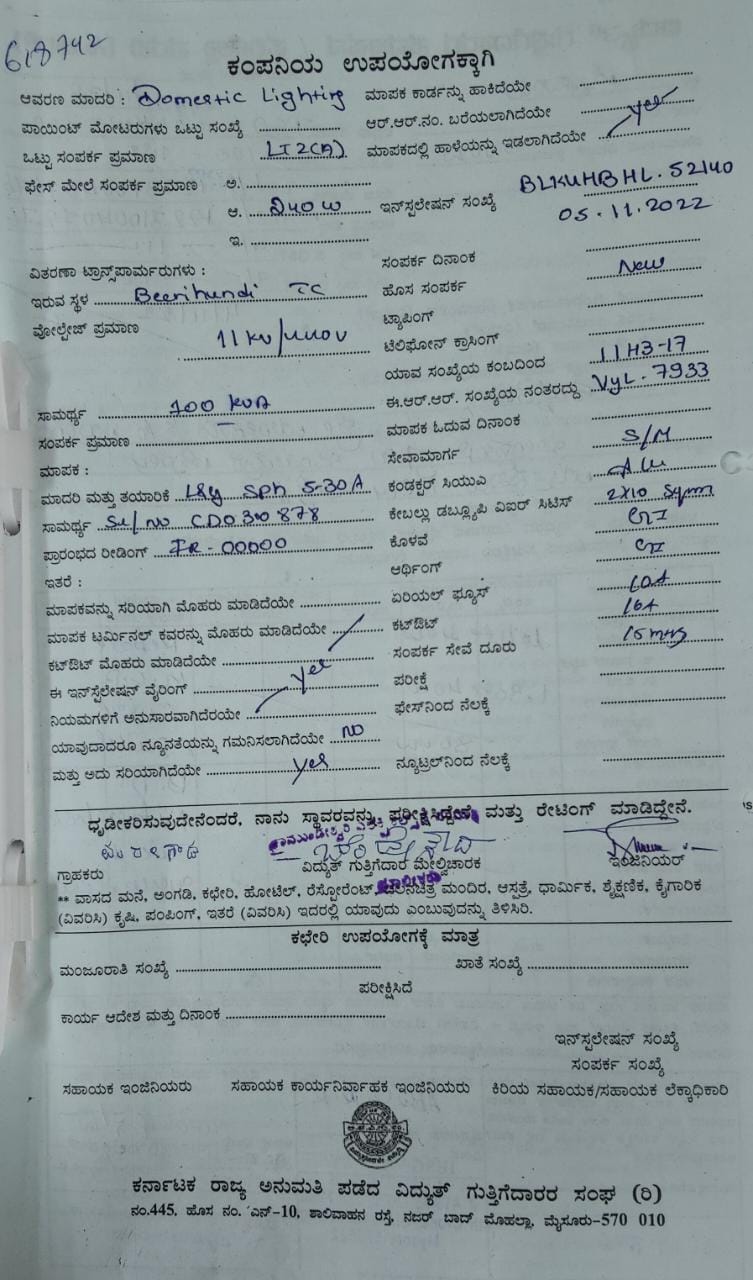 618742
ಕಂಪನಿಯ ಉಪಯೋಗಕ್ಕಾಗಿ
ಆವರಣ ಮಾದರಿ : Domestic Lighting
ಪಾಯಿಂಟ್ ಮೋಟರುಗಳು ಒಟ್ಟು ಸಂಖ್ಯೆ ....................
ಒಟ್ಟು ಸಂಪರ್ಕ ಪ್ರಮಾಣ LT2(A)
ಫೇಸ್ ಮೇಲೆ ಸಂಪರ್ಕ ಪ್ರಮಾಣ ಅ. ..............................
ಆ. 240 W
ಇ. ..............................
ಮಾಪಕ ಕಾರ್ಡನ್ನು ಹಾಕಿದೆಯೇ ..............................
ಆರ್.ಆರ್.ನಂ. ಬರೆಯಲಾಗಿದೆಯೇ yes
ಮಾಪಕದಲ್ಲಿ ಹಾಳೆಯನ್ನು ಇಡಲಾಗಿದೆಯೇ
ಇನ್‌ಸ್ಪಲೇಷನ್ ಸಂಖ್ಯೆ BLKUHBHL.52140
05.11.2022
ವಿತರಣಾ ಟ್ರಾನ್ಸ್‌ಪಾರ್ಮರುಗಳು :
ಇರುವ ಸ್ಥಳ Beerihundi TC
ವೋಲ್ಟೇಜ್ ಪ್ರಮಾಣ 11 KV/440V
ಸಾಮರ್ಥ್ಯ 100 KVA
ಸಂಪರ್ಕ ಪ್ರಮಾಣ ........................................
ಮಾಪಕ :
ಮಾದರಿ ಮತ್ತು ತಯಾರಿಕೆ L&G Sph 5-30A
ಸಾಮರ್ಥ್ಯ Sl/No CD0300878
ಪ್ರಾರಂಭದ ರೀಡಿಂಗ್ IR-00000
ಇತರೆ :
ಮಾಪಕವನ್ನು ಸರಿಯಾಗಿ ಮೊಹರು ಮಾಡಿದೆಯೇ ....................
ಮಾಪಕ ಟರ್ಮಿನಲ್ ಕವರನ್ನು ಮೊಹರು ಮಾಡಿದೆಯೇ
ಕಟ್‌ಔಟ್ ಮೊಹರು ಮಾಡಿದೆಯೇ ..............................
ಈ ಇನ್‌ಸ್ಪೆಲೇಷನ್ ವೈರಿಂಗ್ yes
ನಿಯಮಗಳಿಗೆ ಅನುಸಾರವಾಗಿದೆರಯೇ
ಯಾವುದಾದರೂ ನ್ಯೂನತೆಯನ್ನು ಗಮನಿಸಲಾಗಿದೆಯೇ NO
ಮತ್ತು ಅದು ಸರಿಯಾಗಿದೆಯೇ yes
ಸಂಪರ್ಕ ದಿನಾಂಕ ..............................
ಹೊಸ ಸಂಪರ್ಕ New
ಟ್ಯಾಪಿಂಗ್ ..............................
ಟೆಲಿಫೋನ್ ಕ್ರಾಸಿಂಗ್ ..............................
ಯಾವ ಸಂಖ್ಯೆಯ ಕಂಬದಿಂದ 11H3-17
ಈ.ಆರ್.ಆರ್. ಸಂಖ್ಯೆಯ ನಂತರದ್ದು VyL.7933
ಮಾಪಕ ಓದುವ ದಿನಾಂಕ ..............................
ಸೇವಾಮಾರ್ಗ S/M
ಕಂಡಕ್ಟರ್ ಸಿಯುಎ
ಕೇಬಲ್ಲು ಡಬ್ಲ್ಯೂಪಿ ವಿಐರ್ ಸಿಟಿಸ್ 2X10 Sqmm
ಕೊಳವೆ GI
ಆರ್ಥಿಂಗ್ GI
ಏರಿಯಲ್ ಫ್ಯೂಸ್ 10A
ಕಟ್‌ಔಟ್ 16A
ಸಂಪರ್ಕ ಸೇವೆ ದೂರು 15 mtrs
ಪರೀಕ್ಷೆ ..............................
ಫೇಸ್‌ನಿಂದ ನೆಲಕ್ಕೆ ..............................
ನ್ಯೂಟ್ರಲ್‌ನಿಂದ ನೆಲಕ್ಕೆ ..............................
ಧೃಡೀಕರಿಸುವುದೇನೆಂದರೆ, ನಾನು ಸ್ಥಾವರವನ್ನು ಪರೀಕ್ಷಿಸಿದ್ದೇನೆ ಮತ್ತು ರೇಟಿಂಗ್ ಮಾಡಿದ್ದೇನೆ.
ಗ್ರಾಹಕರು ವಿದ್ಯುತ್ ಗುತ್ತಿಗೆದಾರ ಮೇಲ್ವಿಚಾರಕ ಇಂಜಿನಿಯರ್
** ವಾಸದ ಮನೆ, ಅಂಗಡಿ, ಕಛೇರಿ, ಹೋಟೆಲ್, ರೆಸ್ಟೋರೆಂಟ್, ಚಲನಚಿತ್ರ ಮಂದಿರ, ಆಸ್ಪತ್ರೆ, ಧಾರ್ಮಿಕ, ಶೈಕ್ಷಣಿಕ, ಕೈಗಾರಿಕ
(ವಿವರಿಸಿ) ಕೃಷಿ, ಪಂಪಿಂಗ್, ಇತರೆ (ವಿವರಿಸಿ) ಇದರಲ್ಲಿ ಯಾವುದು ಎಂಬುವುದನ್ನು ತಿಳಿಸಿರಿ.
ಕಛೇರಿ ಉಪಯೋಗಕ್ಕೆ ಮಾತ್ರ
ಮಂಜೂರಾತಿ ಸಂಖ್ಯೆ ........................................ ಖಾತೆ ಸಂಖ್ಯೆ ........................................
ಪರೀಕ್ಷಿಸಿದೆ
ಕಾರ್ಯ ಆದೇಶ ಮತ್ತು ದಿನಾಂಕ ........................................
ಇನ್‌ಸ್ಪಲೇಷನ್ ಸಂಖ್ಯೆ
ಸಂಪರ್ಕ ಸಂಖ್ಯೆ
ಸಹಾಯಕ ಇಂಜಿನಿಯರು ಸಹಾಯಕ ಕಾರ್ಯನಿರ್ವಾಹಕ ಇಂಜಿನಿಯರು ಕಿರಿಯ ಸಹಾಯಕ/ಸಹಾಯಕ ಲೆಕ್ಕಾಧಿಕಾರಿ
ಕರ್ನಾಟಕ ರಾಜ್ಯ ಅನುಮತಿ ಪಡೆದ ವಿದ್ಯುತ್ ಗುತ್ತಿಗೆದಾರರ ಸಂಘ (ರಿ)
ನಂ.445, ಹೊಸ ನಂ. ಎನ್-10, ಶಾಲಿವಾಹನ ರಸ್ತೆ, ನಜರ್ ಬಾದ್ ಮೊಹಲ್ಲಾ, ಮೈಸೂರು-570 010